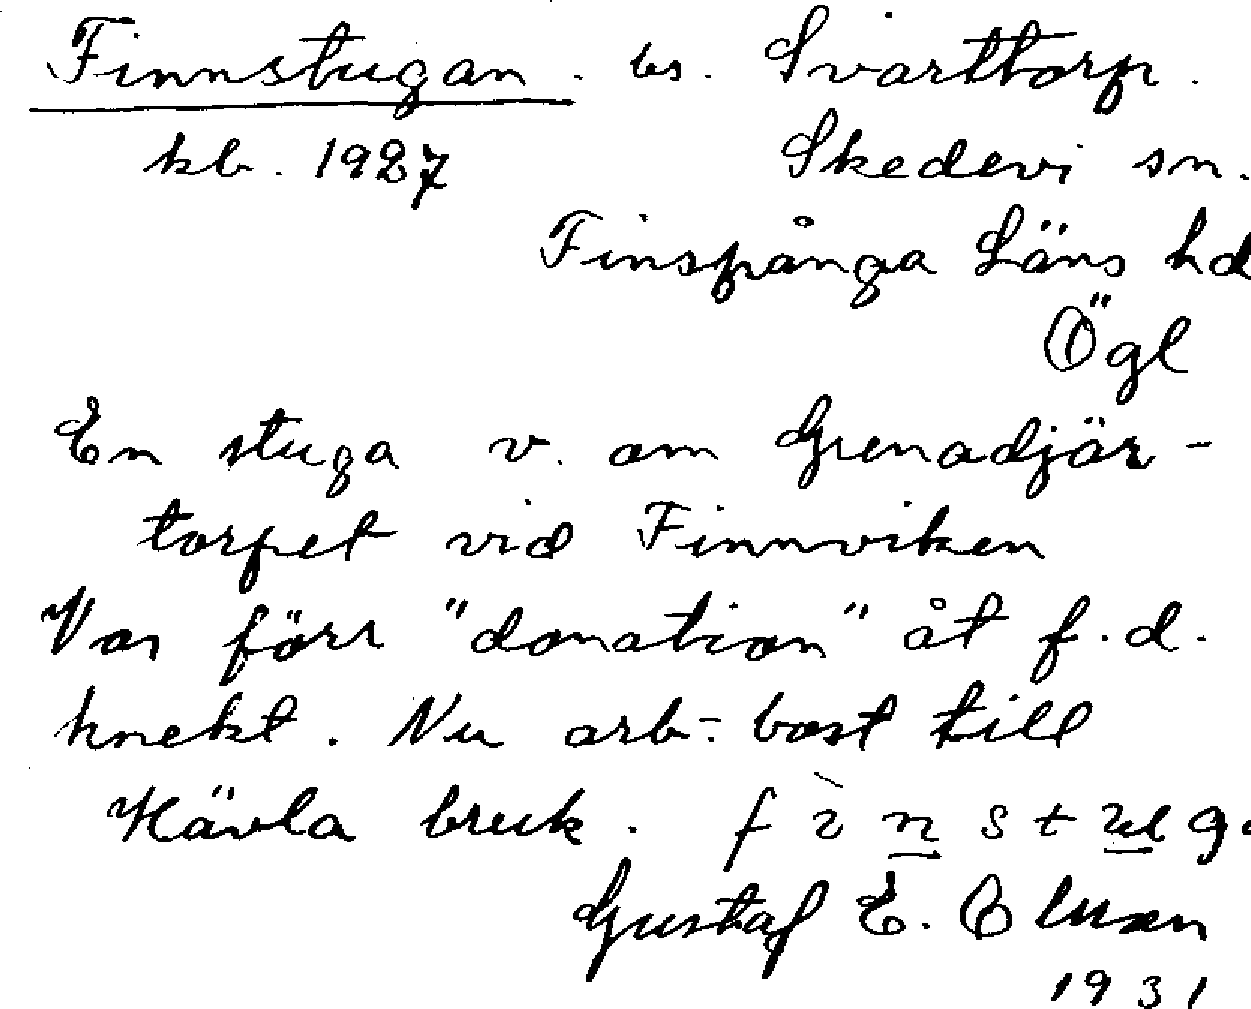 Finnstugan. bs. Svarttorp.
kb. 1927 Skedevi sn.
Finspånga Läns hd
Ögl
En stuga v. om Grenadjär-
torpet vid Finnviken
Var förr "donation" åt f.d.
knekt. Nu arb.-bost till
Hävla bruk.
Gustaf E. Olsson
1931